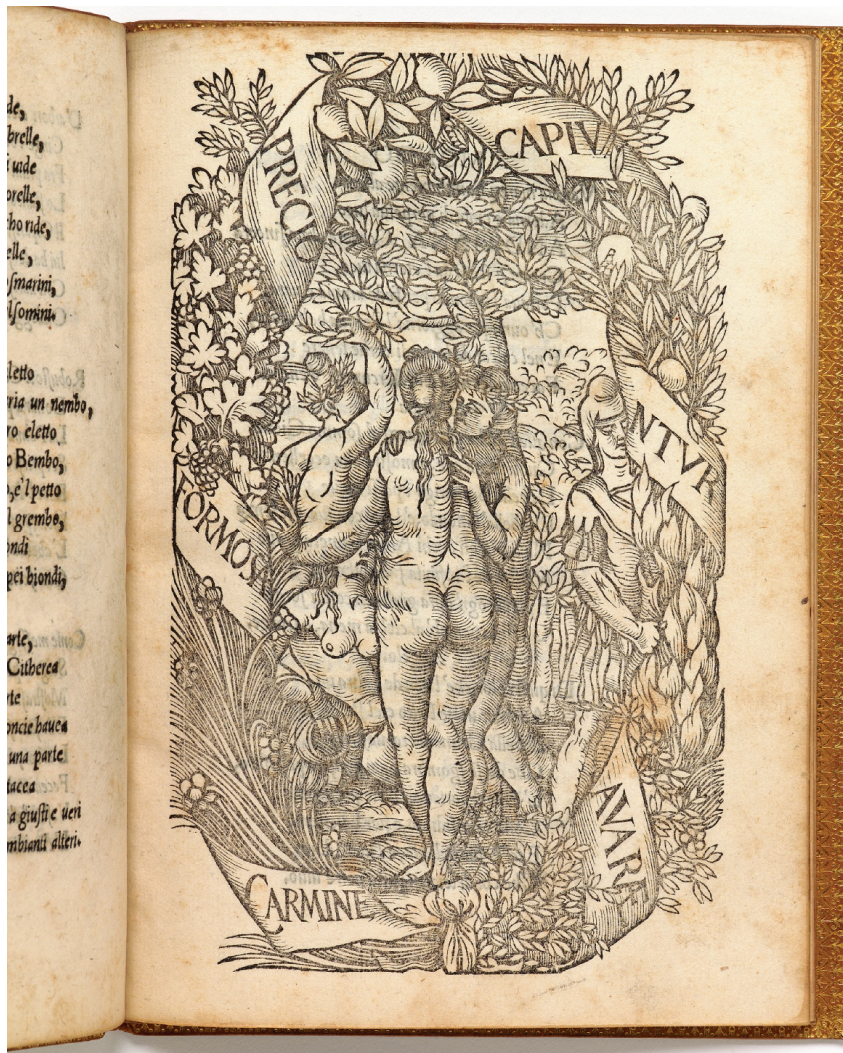 de,
brelle,
i uide
orelle,
cho ride,
elle,
smarini,
lsomini.
letto
ria un nembo,
ro eletto
o Bembo,
o, e'l petto
l grembo,
ondi
pei biondi,
arte,
Citherea
rte
oncie hauea
una parte
tacea
a giusti e ueri
mbianti alteri.
CARMINE
FORMOSÆ
PRECIO
CAPIV
NTVR
AVARÆ